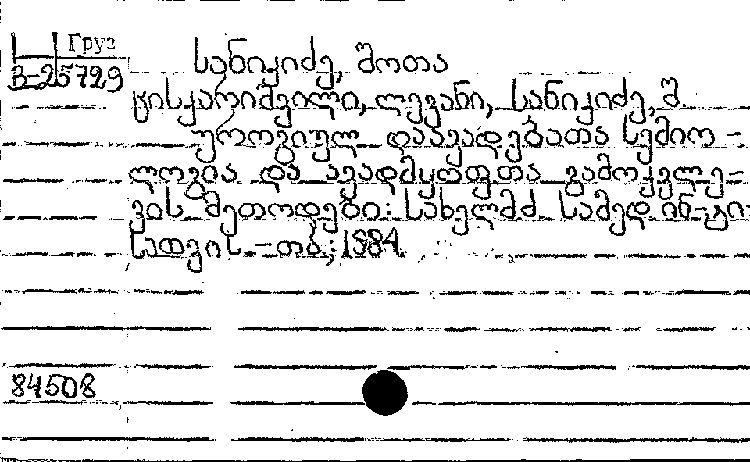 Груз
В-25729
სანიკიძე, შოთა
ცისკარიშვილი, ლევანი, სანიკიძე, შ.
უროგიულ დაავადებათა სემიო-
ლოგია და ავადმყოფთა გამოკვლე-
ვის მეთოდები: სახელმძ. სამედ. ინ-ტი
სათვის. - თბ.; 1984.
84508